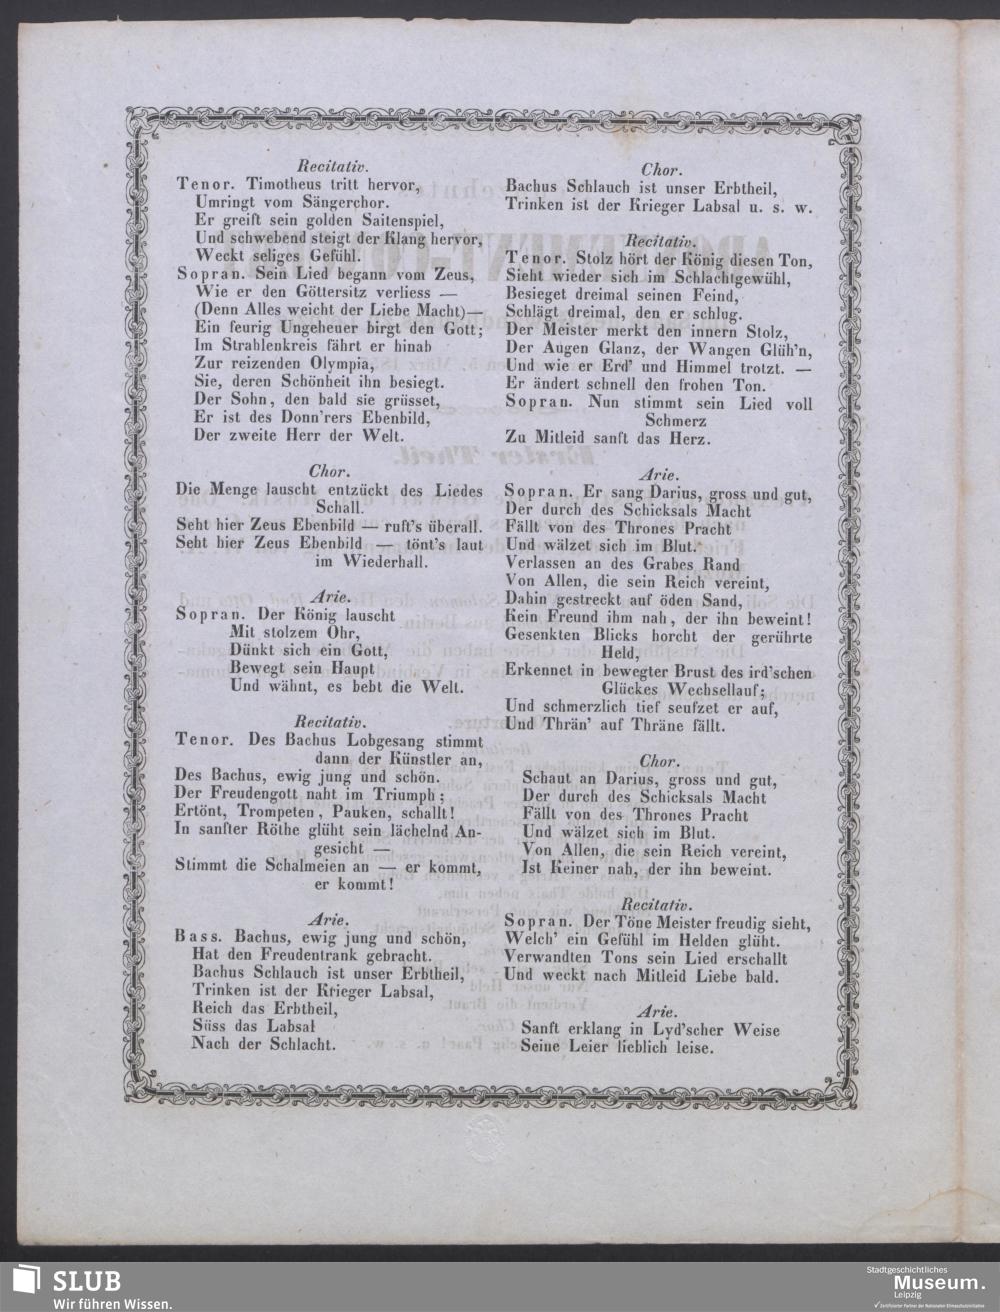 Recitativ.
Tenor. Timotheus tritt hervor,
Umringt vom Sängerchor.
Er greift sein golden Saitenspiel,
Und schwebend steigt der Klang hervor,
Weckt seliges Gefühl.
Sopran. Sein Lied begann vom Zeus,
Wie er den Göttersitz verliess —
(Denn Alles weicht der Liebe Macht)—
Ein feurig Ungeheuer birgt den Gott;
Im Strahlenkreis fährt er hinab
Zur reizenden Olympia,
Sie, deren Schönheit ihn besiegt.
Der Sohn, den bald sie grüsset,
Er ist des Donn'rers Ebenbild,
Der zweite Herr der Welt.
Chor.
Die Menge lauscht entzückt des Liedes
Schall.
Seht hier Zeus Ebenbild — ruft's überall.
Seht hier Zeus Ebenbild — tönt's laut
im Wiederhall.
Arie.
Sopran. Der König lauscht
Mit stolzem Ohr,
Dünkt sich ein Gott,
Bewegt sein Haupt
Und wähnt, es bebt die Welt.
Recitativ.
Tenor. Des Bachus Lobgesang stimmt
dann der Künstler an,
Des Bachus, ewig jung und schön.
Der Freudengott naht im Triumph;
Ertönt, Trompeten, Pauken, schallt!
In sanfter Röthe glüht sein lächelnd An-
gesicht —
Stimmt die Schalmeien an — er kommt,
er kommt!
Arie.
Bass. Bachus, ewig jung und schön,
Hat den Freudentrank gebracht.
Bachus Schlauch ist unser Erbtheil,
Trinken ist der Krieger Labsal,
Reich das Erbtheil,
Süss das Labsal
Nach der Schlacht.
Chor.
Bachus Schlauch ist unser Erbtheil,
Trinken ist der Krieger Labsal u. s. w.
Recitativ.
Tenor. Stolz hört der König diesen Ton,
Sieht wieder sich im Schlachtgewühl,
Besieget dreimal seinen Feind,
Schlägt dreimal, den er schlug.
Der Meister merkt den innern Stolz,
Der Augen Glanz, der Wangen Glüh'n,
Und wie er Erd' und Himmel trotzt. —
Er ändert schnell den frohen Ton.
Sopran. Nun stimmt sein Lied voll
Schmerz
Zu Mitleid sanft das Herz.
Arie.
Sopran. Er sang Darius, gross und gut,
Der durch des Schicksals Macht
Fällt von des Thrones Pracht
Und wälzet sich im Blut.
Verlassen an des Grabes Rand
Von Allen, die sein Reich vereint,
Dahin gestreckt auf öden Sand,
Kein Freund ihm nah, der ihn beweint!
Gesenkten Blicks horcht der gerührte
Held,
Erkennet in bewegter Brust des ird'schen
Glückes Wechsellauf;
Und schmerzlich tief seufzet er auf,
Und Thrän' auf Thräne fällt.
Chor.
Schaut an Darius, gross und gut,
Der durch des Schicksals Macht
Fällt von des Thrones Pracht
Und wälzet sich im Blut.
Von Allen, die sein Reich vereint,
Ist Keiner nah, der ihn beweint.
Recitativ.
Sopran. Der Töne Meister freudig sieht,
Welch' ein Gefühl im Helden glüht.
Verwandten Tons sein Lied erschallt
Und weckt nach Mitleid Liebe bald.
Arie.
Sanft erklang in Lyd'scher Weise
Seine Leier lieblich leise.
SLUB
Wir führen Wissen.
Stadtgeschichtliches
Museum.
Leipzig
Zertifizierter Partner der Nationalen Klimaschutzinitiative